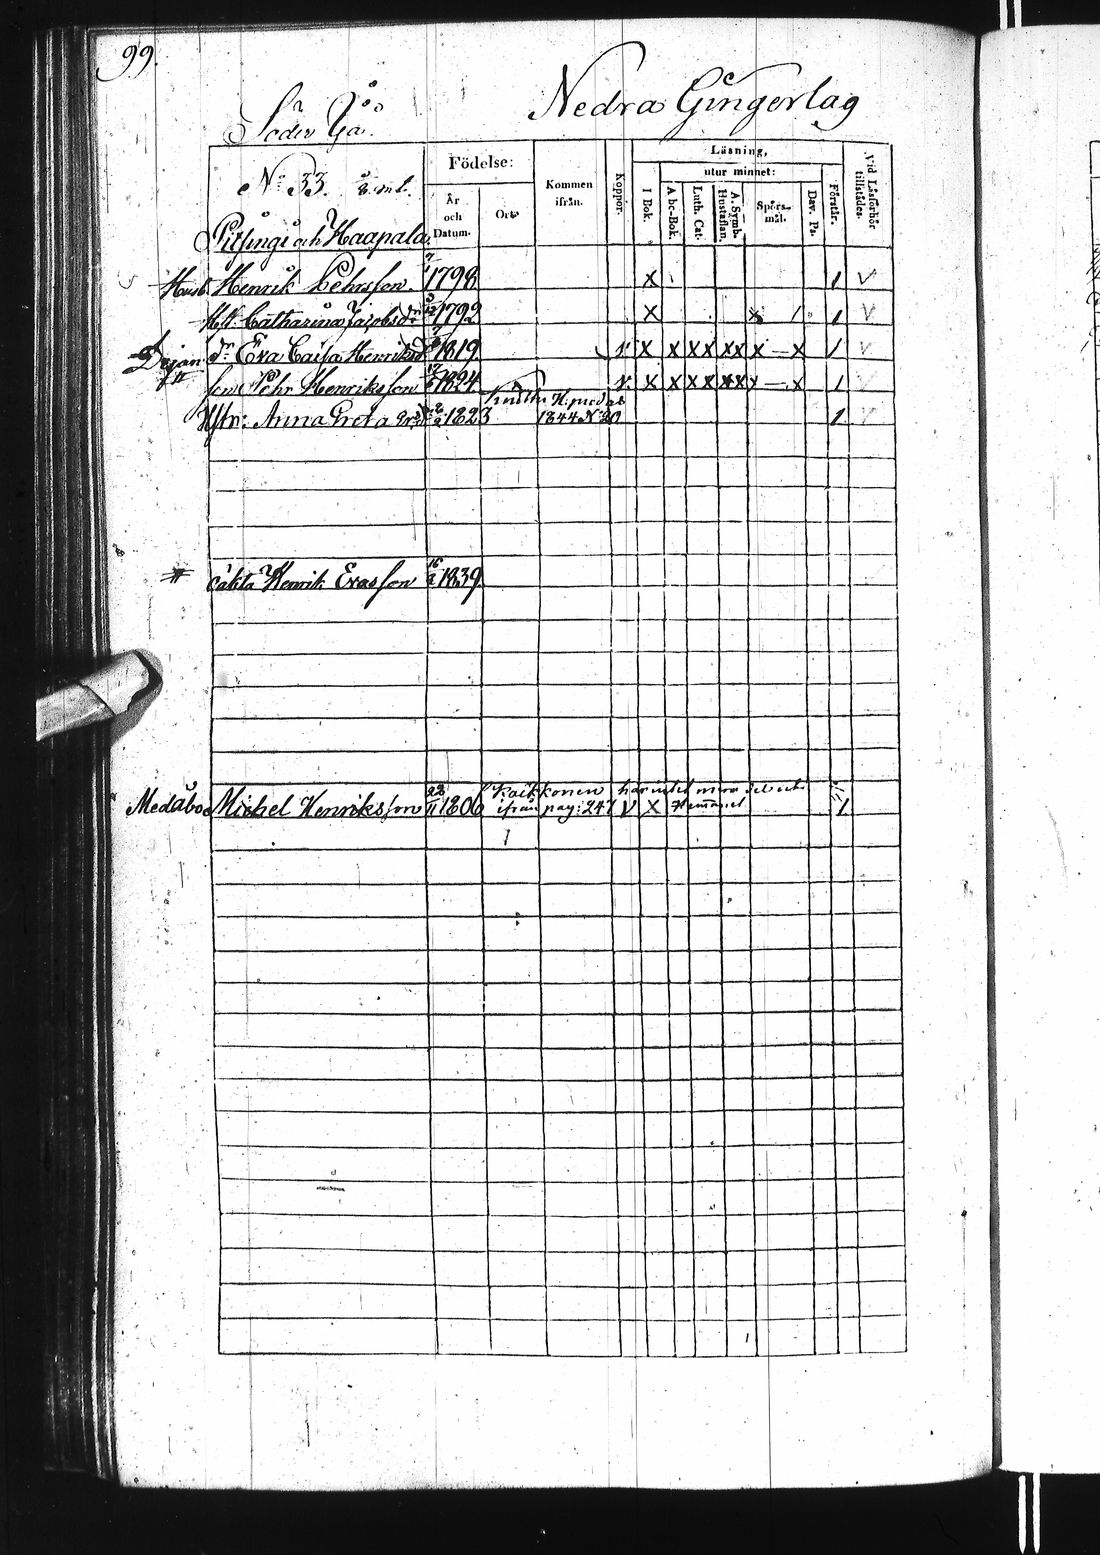 99.
Nedra Gingerlag
Söder Yå.
No 33.
Födelse:
År och Datum.
Ort.
Kommen ifrån.
Koppor.
Läsning,
utur minnet:
I Bok.
A bc-Bok.
Luth. Cat.
A. Symb. Hustaflan.
Spörs-mål.
Dav. Ps.
Förstår.
Vid Läsförhör tillstädes.
och Haapala.
Husb. Henrik Pehrsson. 1798 X 1 V
H. Catharina Jacobsdr 1792 X x 1 1 V
dr Eva Caisa Henriksd 1819. v. X X XX XX X — X 1 V
son Pehr Henriksson 1824 v. X X XX XX x — X 1 V
Hstr: Anna Greta 1823 1844 N 20 1 V
# oäkta Henrik Evasson 16 1839.
Medåboe Michel Henriksson 22/11 1806 ifrån pag: 247 V X 1